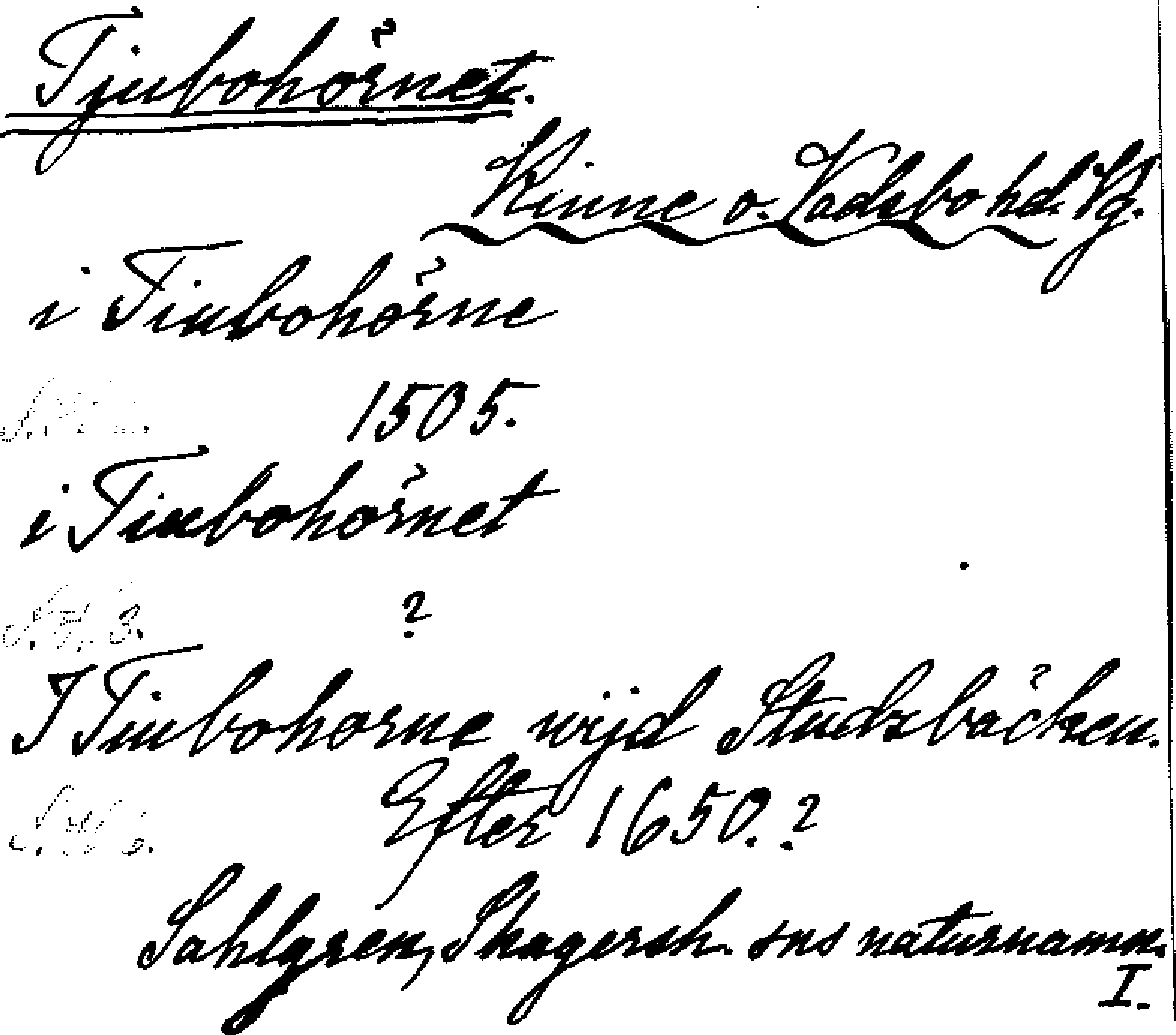 Tjubohörnet.
Kinne o. Vadsbo hd. Vg.
i Tiubohörne
1505.
i Tiubohörnet
?
I Tiubohorne wijd Studzbäcken.
Efter 1650.?
Sahlgren, Skagersh. sns naturnamn.
I.